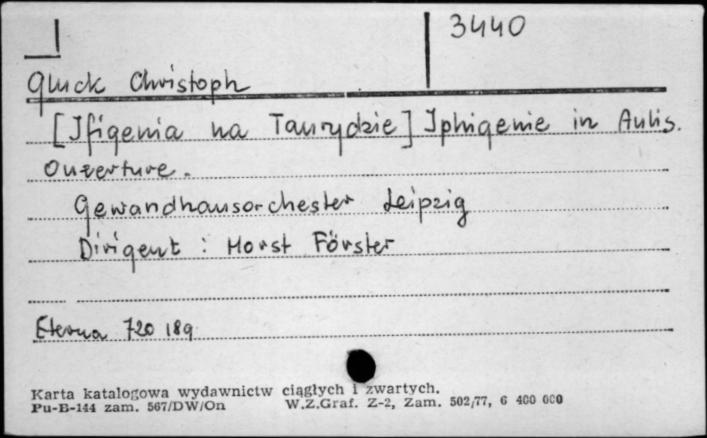 3440
Gluck Christoph
[Ifigenia na Taurydzie] Iphigenie in Aulis.
Ouverture.
Gewandhausorchester Leipzig
Dirigent : Horst Förster
Eterna 720 189
Karta katalogowa wydawnictw ciągłych i zwartych.
Pu-B-144 zam. 567/DW/On W.Z.Graf. Z-2, Zam. 502/77, 6 400 000